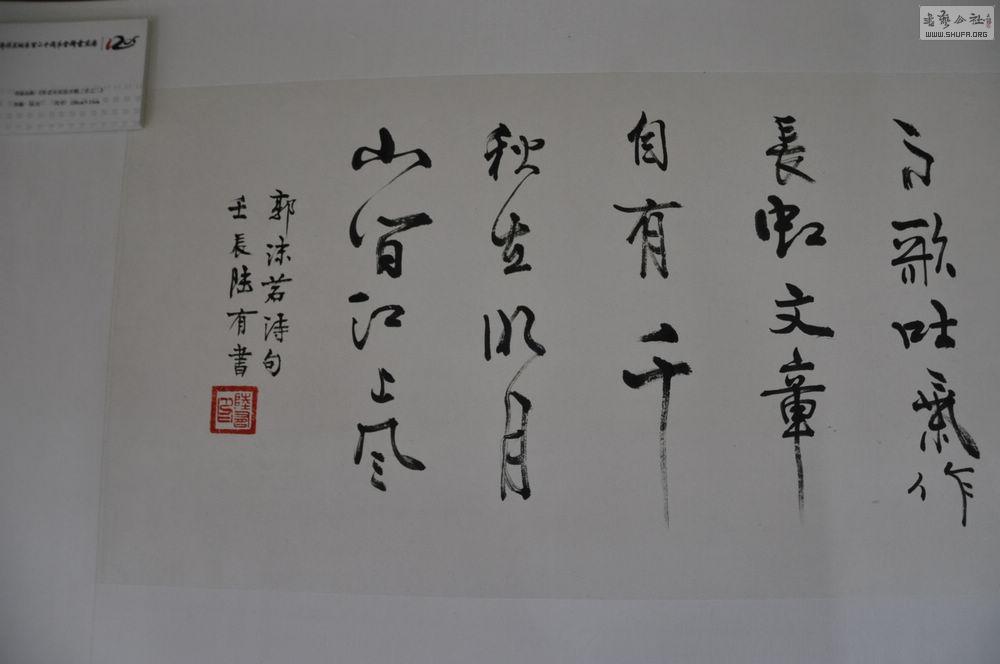 高歌吐氣作
長虹文章
自有千
秋在明月
山間江上風
郭沫若詩句
壬辰陸有書
書藝公社
WWW.SHUFA.ORG